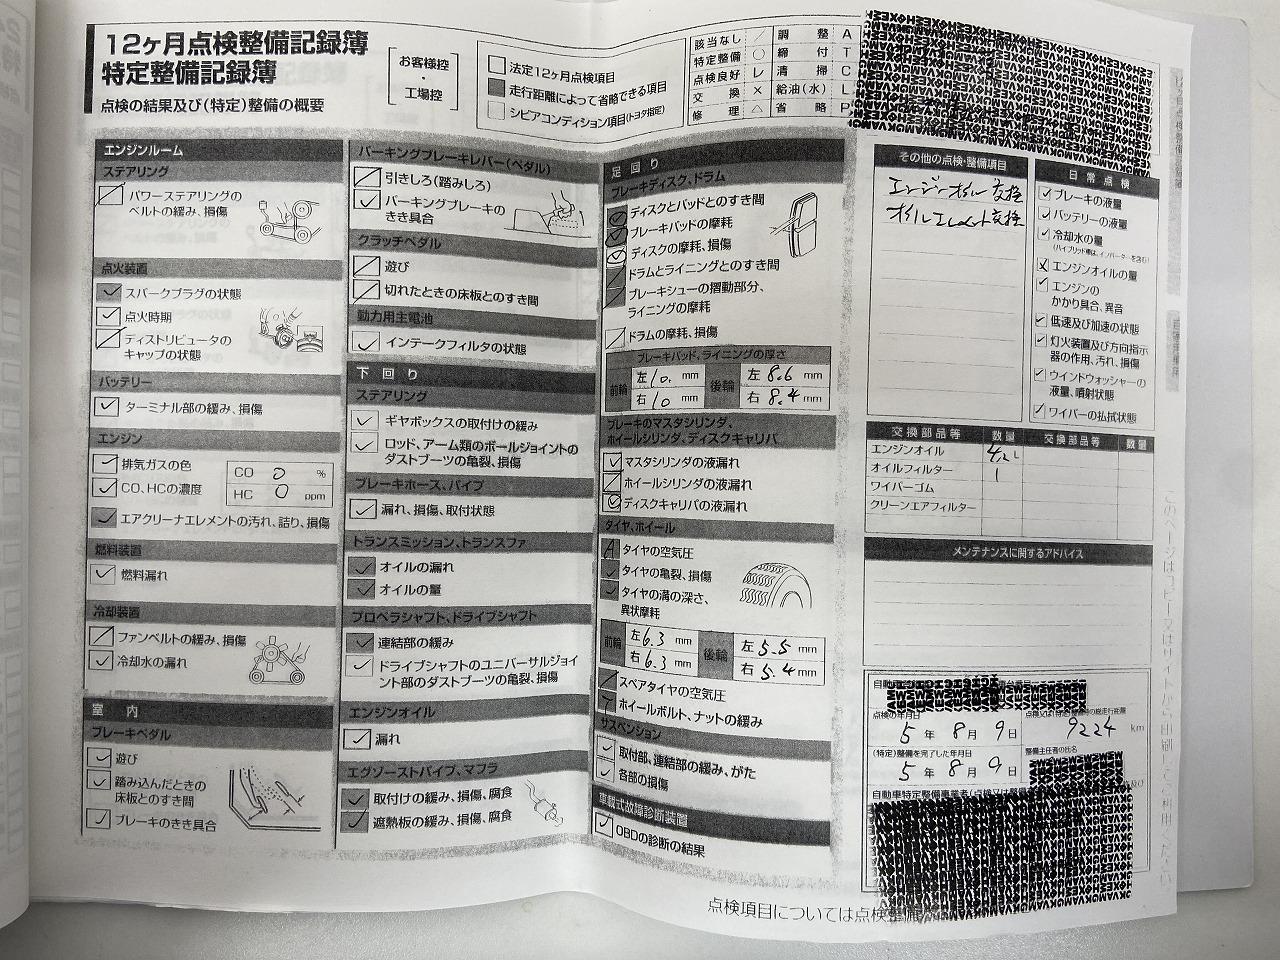 12ヶ月点検整備記録簿
特定整備記録簿
点検の結果及び(特定)整備の概要
お客様控
・
工場控
法定12ヶ月点検項目
走行距離によって省略できる項目
シビアコンディション項目(トヨタ指定)
該当なし ／ 調整 A
特定整備 ○ 締付 T
点検良好 レ 清掃 C
交換 × 給油(水) L
修理 △ 省略 P
エンジンルーム
ステアリング
パワーステアリングの
ベルトの緩み、損傷
点火装置
スパークプラグの状態
点火時期
ディストリビュータの
キャップの状態
バッテリー
ターミナル部の緩み、損傷
エンジン
排気ガスの色
CO、HCの濃度
CO 0 %
HC 0 ppm
エアクリーナエレメントの汚れ、詰り、損傷
燃料装置
燃料漏れ
冷却装置
ファンベルトの緩み、損傷
冷却水の漏れ
室内
ブレーキペダル
遊び
踏み込んだときの
床板とのすき間
ブレーキのきき具合
パーキングブレーキレバー(ペダル)
引きしろ(踏みしろ)
パーキングブレーキの
きき具合
クラッチペダル
遊び
切れたときの床板とのすき間
動力用主電池
インテークフィルタの状態
下回り
ステアリング
ギヤボックスの取付けの緩み
ロッド、アーム類のボールジョイントの
ダストブーツの亀裂、損傷
ブレーキホース、パイプ
漏れ、損傷、取付状態
トランスミッション、トランスファ
オイルの漏れ
オイルの量
プロペラシャフト、ドライブシャフト
連結部の緩み
ドライブシャフトのユニバーサルジョイ
ント部のダストブーツの亀裂、損傷
エンジンオイル
漏れ
エグゾーストパイプ、マフラ
取付けの緩み、損傷、腐食
遮熱板の緩み、損傷、腐食
足回り
ブレーキディスク、ドラム
ディスクとパッドとのすき間
ブレーキパッドの摩耗
ディスクの摩耗、損傷
ドラムとライニングとのすき間
ブレーキシューの摺動部分、
ライニングの摩耗
ドラムの摩耗、損傷
ブレーキパッド、ライニングの厚さ
前輪 左 10. mm 後輪 左 8.6 mm
右 10 mm 右 8.4 mm
ブレーキのマスタシリンダ、
ホイールシリンダ、ディスクキャリパ
マスタシリンダの液漏れ
ホイールシリンダの液漏れ
ディスクキャリパの液漏れ
タイヤ、ホイール
A タイヤの空気圧
タイヤの亀裂、損傷
タイヤの溝の深さ、
異状摩耗
前輪 左 6.3 mm 後輪 左 5.5 mm
右 6.3 mm 右 5.4 mm
スペアタイヤの空気圧
T ホイールボルト、ナットの緩み
サスペンション
取付部、連結部の緩み、がた
各部の損傷
車載式故障診断装置
OBDの診断の結果
その他の点検・整備項目
エンジンオイル交換
オイルエレメント交換
日常点検
ブレーキの液量
バッテリーの液量
冷却水の量
(ハイブリッド車は、インバーターを含む)
エンジンオイルの量
エンジンの
かかり具合、異音
低速及び加速の状態
灯火装置及び方向指示
器の作用、汚れ、損傷
ウインドウォッシャーの
液量、噴射状態
ワイパーの払拭状態
交換部品等 数量 交換部品等 数量
エンジンオイル 4.2 L
オイルフィルター 1
ワイパーゴム
クリーンエアフィルター
メンテナンスに関するアドバイス
点検の年月日
5 年 8 月 9 日
9224 km
(特定)整備を完了した年月日
5 年 8 月 9 日
整備主任者の氏名
自動車特定整備事業者(点検又は
点検項目については点検整備